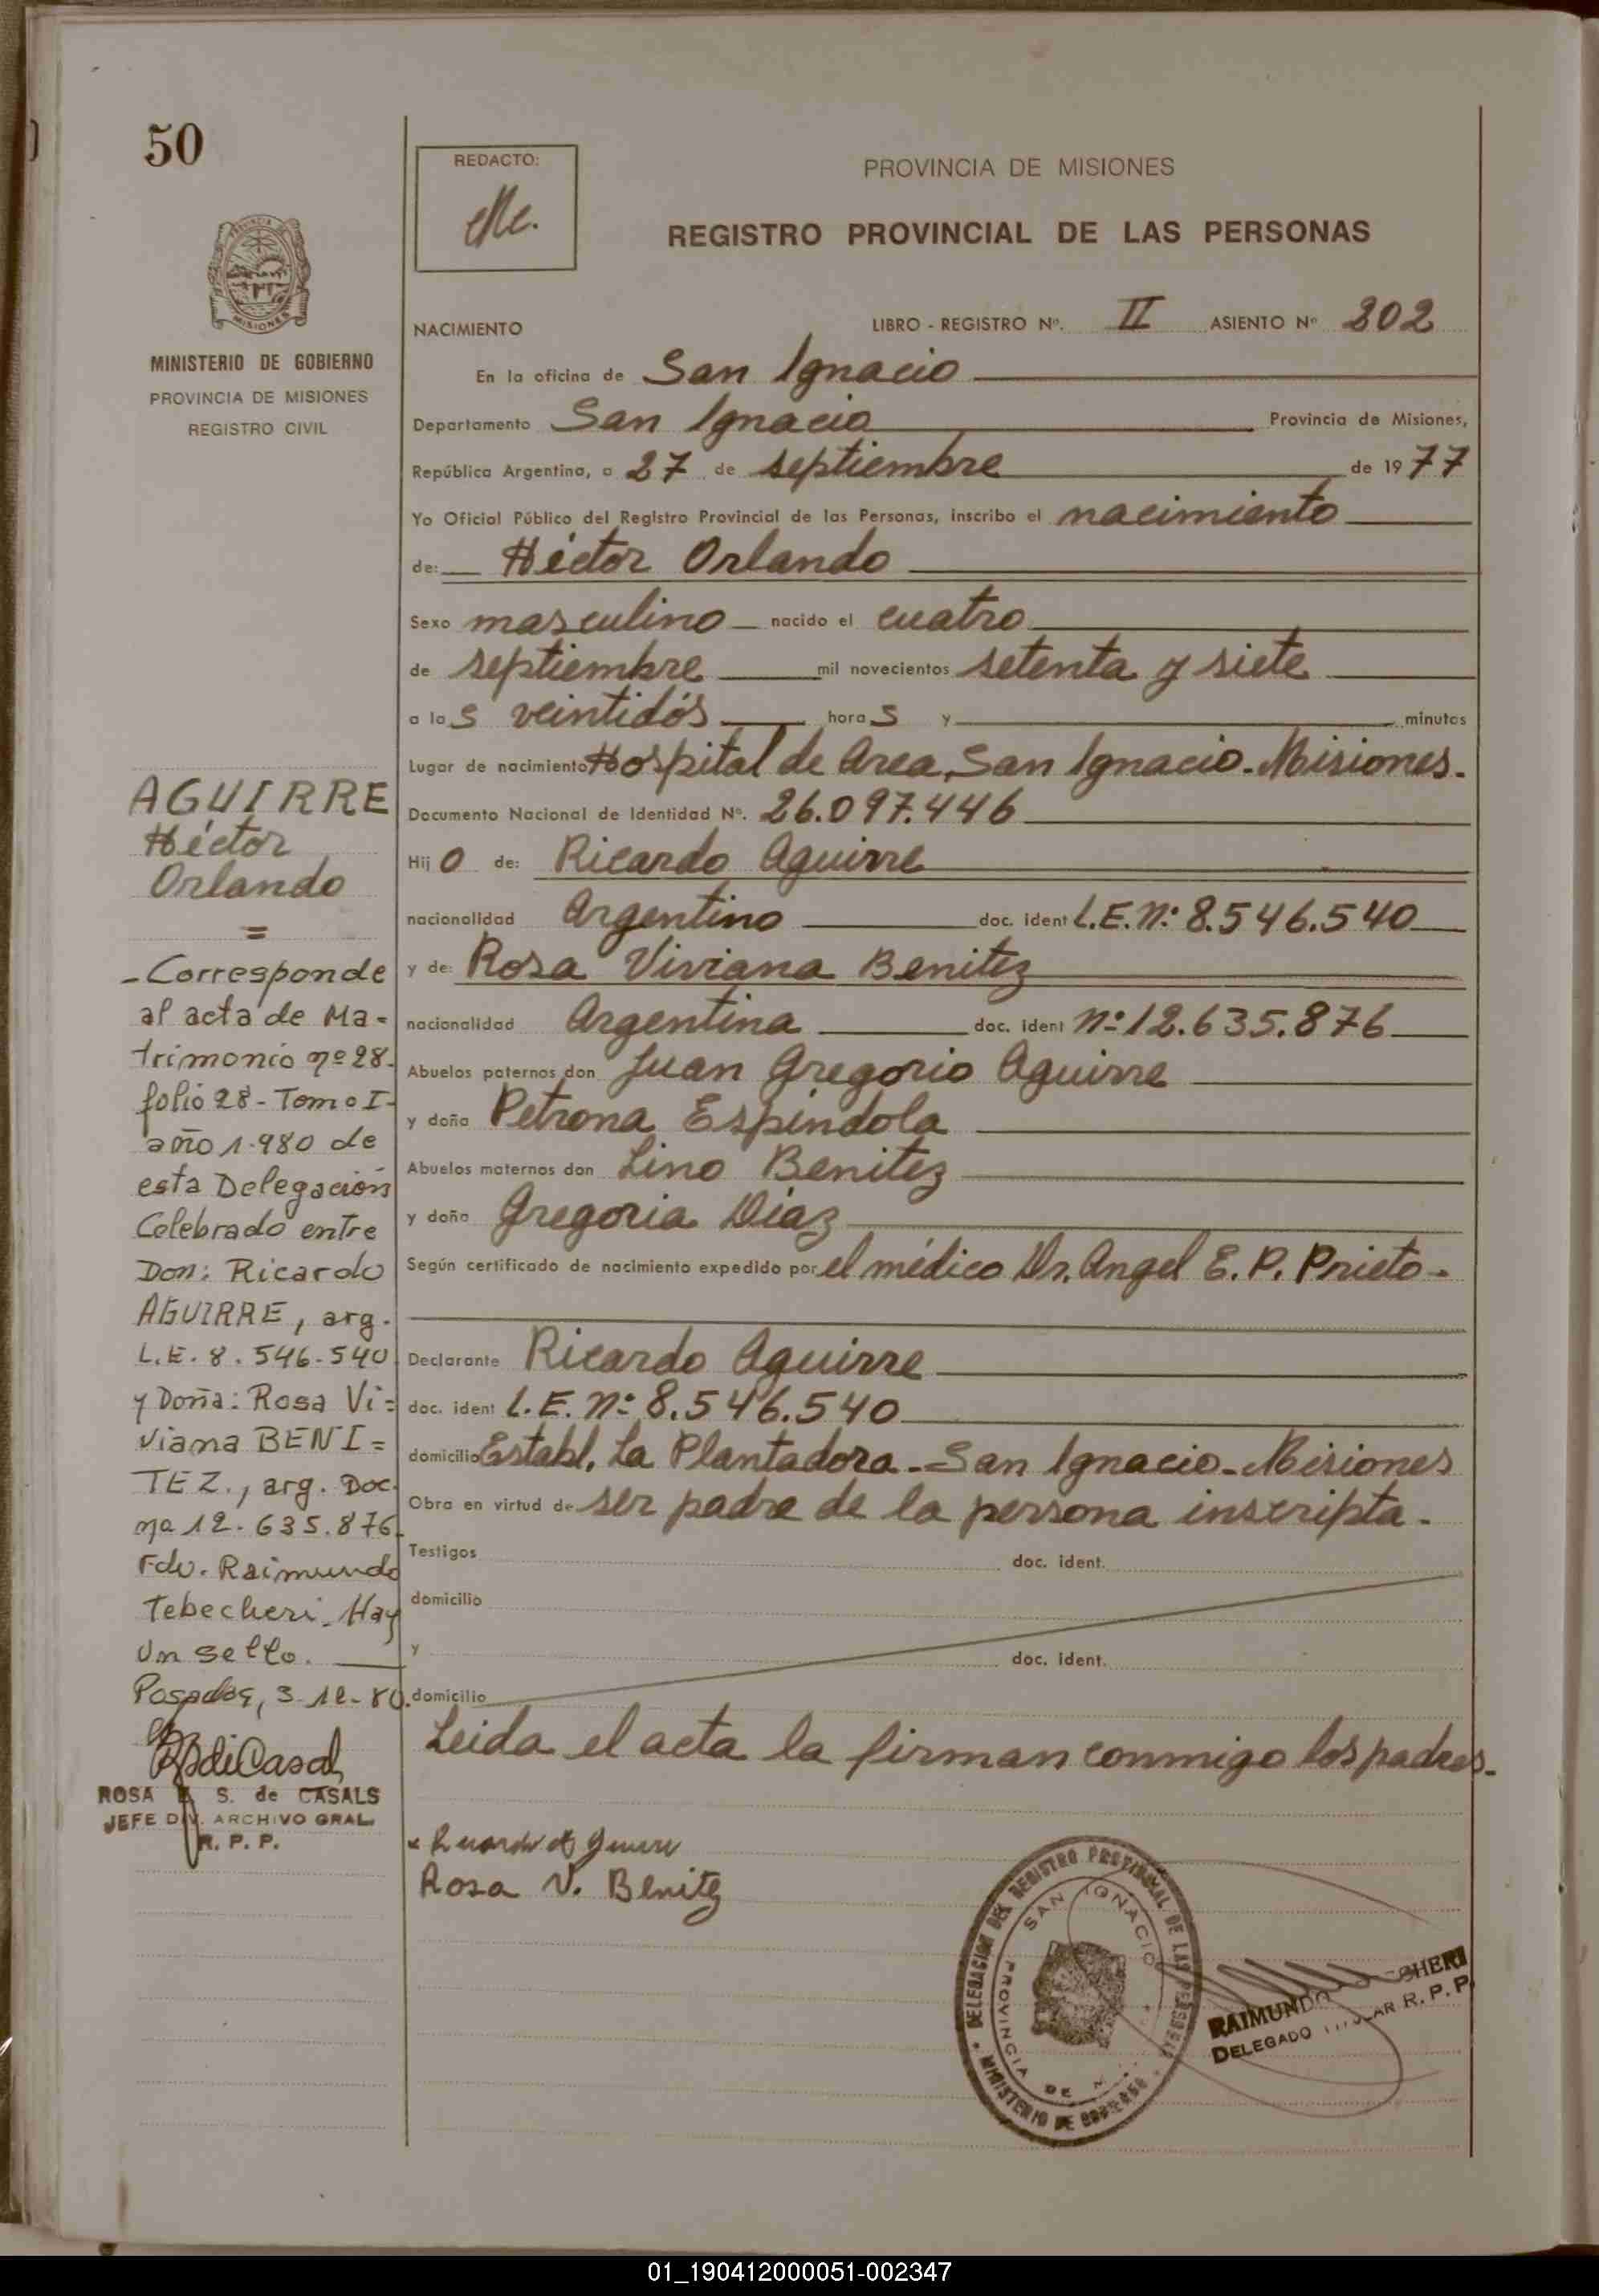 50
REDACTO:
PROVINCIA DE MISIONES
REGISTRO PROVINCIAL DE LAS PERSONAS
MISIONES
MINISTERIO DE GOBIERNO
PROVINCIA DE MISIONES
REGISTRO CIVIL
NACIMIENTO LIBRO - REGISTRO Nº. II ASIENTO Nº 802
En la oficina de San Ignacio
Departamento San Ignacio Provincia de Misiones,
República Argentina, a 27 de septiembre de 1977
Yo Oficial Público del Registro Provincial de las Personas, inscribo el nacimiento
de: Héctor Orlando
Sexo masculino nacido el cuatro
de septiembre mil novecientos setenta y siete
a las veintidós horas y minutos
Lugar de nacimiento Hospital de Area, San Ignacio - Misiones.
Documento Nacional de Identidad Nº. 26.097.446
Hijo de: Ricardo Aguirre
nacionalidad Argentino doc. ident L.E. Nº: 8.546.540
y de: Rosa Viviana Benitez
nacionalidad Argentina doc. ident Nº: 12.635.876
Abuelos paternos don Juan Gregorio Aguirre
y doña Petrona Espíndola
Abuelos maternos don Lino Benitez
y doña Gregoria Díaz
Según certificado de nacimiento expedido por el médico Dr. Angel E. P. Prieto.
Declarante Ricardo Aguirre
doc. ident L.E. Nº: 8.546.540
domicilio Establ. La Plantadora - San Ignacio - Misiones
Obra en virtud de ser padre de la persona inscripta.
Testigos doc. ident.
domicilio
y doc. ident.
domicilio
Leida el acta la firman conmigo los padres.
Rosa V. Benitez
AGUIRRE
Héctor
Orlando
=
- Corresponde
al acta de Ma=
trimonio nº 28-
folio 28 - Tomo I-
año 1.980 de
esta Delegación
Celebrado entre
Don: Ricardo
AGUIRRE, arg.
L.E. 8.546.540
y Doña: Rosa Vi=
viana BENI=
TEZ., arg. Doc.
nº 12.635.876.
Fdo. Raimundo
Tebecheri - Hay
Un sello.
Posadas, 3-12-80.
ROSA S. de CASALS
JEFE DIV. ARCHIVO GRAL.
R. P. P.
DELEGACION DEL REGISTRO PROVINCIAL DE LAS PERSONAS
SAN IGNACIO
PROVINCIA DE
MINISTERIO DE GOBIERNO
RAIMUNDO
DELEGADO TITULAR R. P. P.
01_190412000051-002347